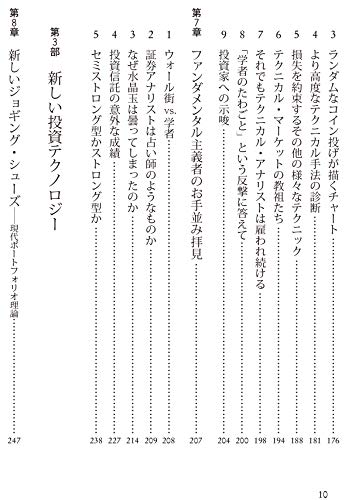 3 ランダムなコイン投げが描くチャート……176
4 より高度なテクニカル手法の診断……181
5 損失を約束するその他の様々なテクニック……188
6 テクニカル・マーケットの教祖たち……194
7 それでもテクニカル・アナリストは雇われ続ける……198
8 「学者のたわごと」という反撃に答えて……200
9 投資家への示唆……204
第7章 ファンダメンタル主義者のお手並み拝見……207
1 ウォール街 vs. 学者……208
2 証券アナリストは占い師のようなものか……209
3 なぜ水晶玉は曇ってしまったのか……214
4 投資信託の意外な成績……227
5 セミストロング型かストロング型か……238
第3部 新しい投資テクノロジー
第8章 新しいジョギング・シューズ——現代ポートフォリオ理論……247
10